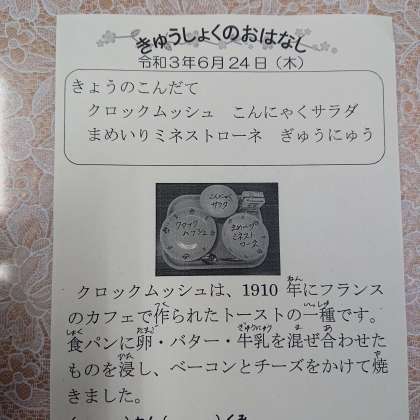 きゅうしょくのおはなし
令和3年6月24日（木）
きょうのこんだて
クロックムッシュ　こんにゃくサラダ
まめいりミネストローネ　ぎゅうにゅう
こんにゃくサラダ
クロックムッシュ
まめいりミネストローネ
クロックムッシュは、1910年にフランス
のカフェで作られたトーストの一種です。
食パンに卵・バター・牛乳を混ぜ合わせた
ものを浸し、ベーコンとチーズをかけて焼
きました。